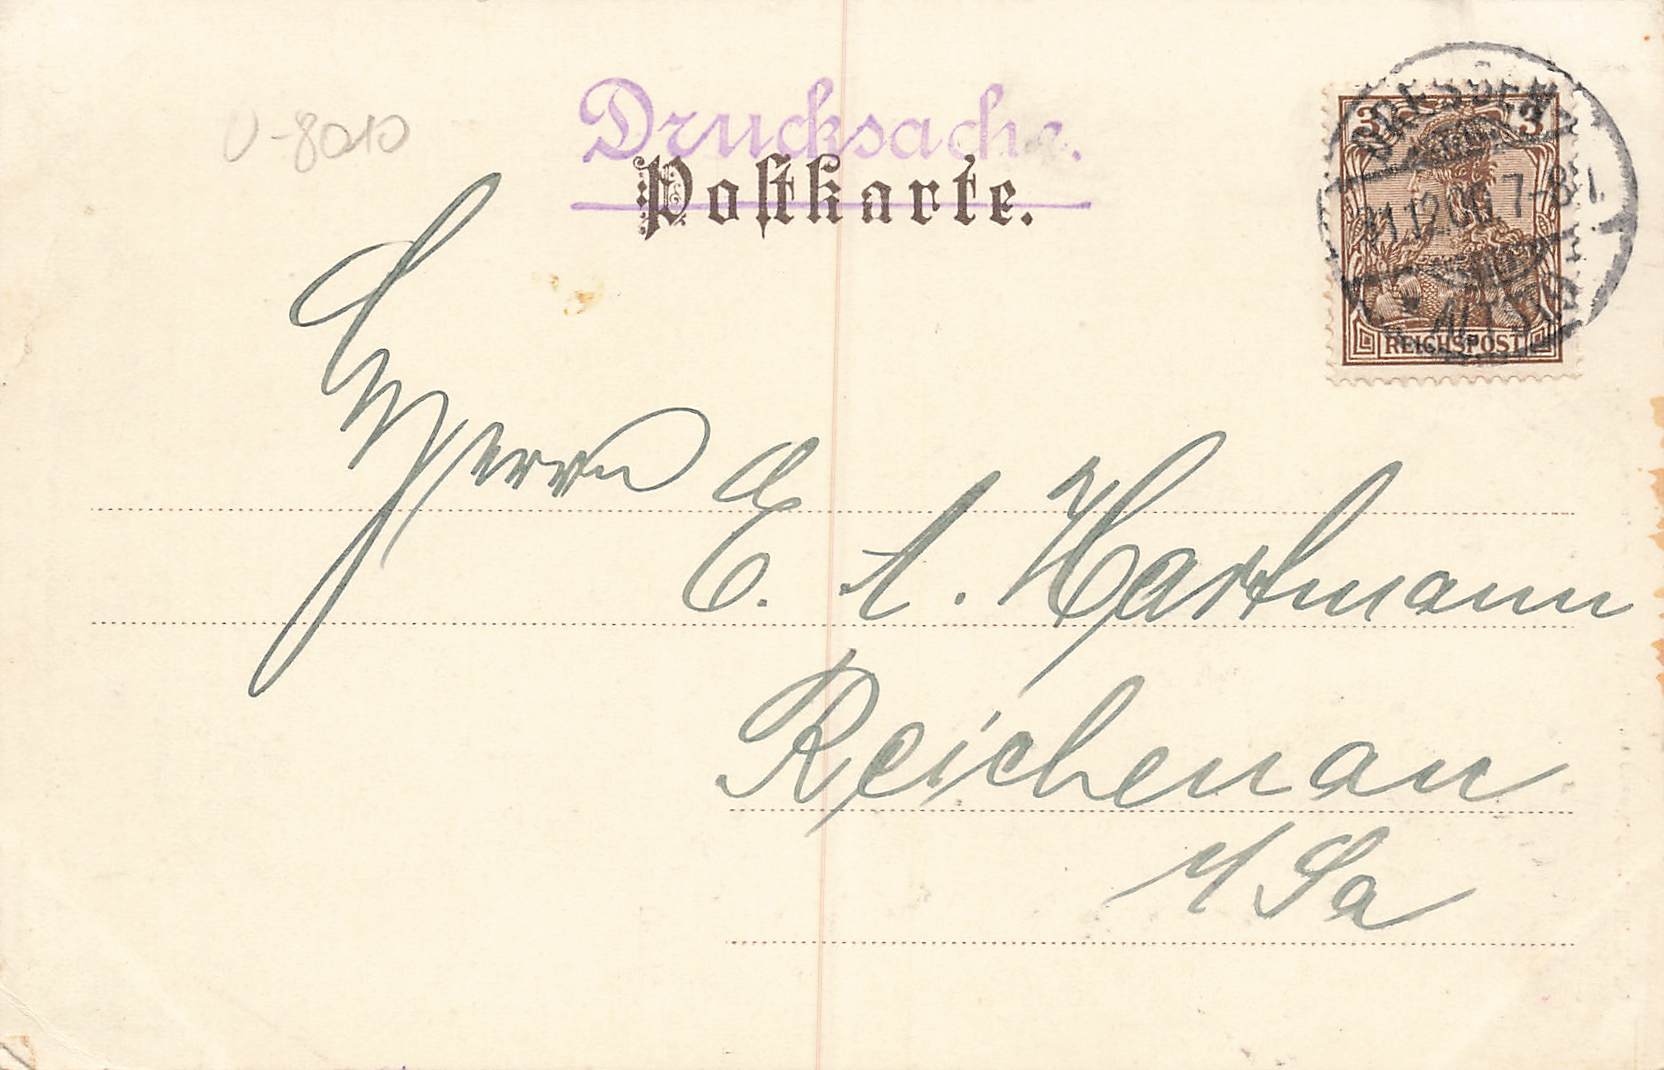 Drucksache.
Postkarte.
U-8010
3 3
DRESDEN
31.12.00. 7-8
ALTST.
REICHSPOST
Herrn
E. A. Hartmann
Reichenau
i/Sa